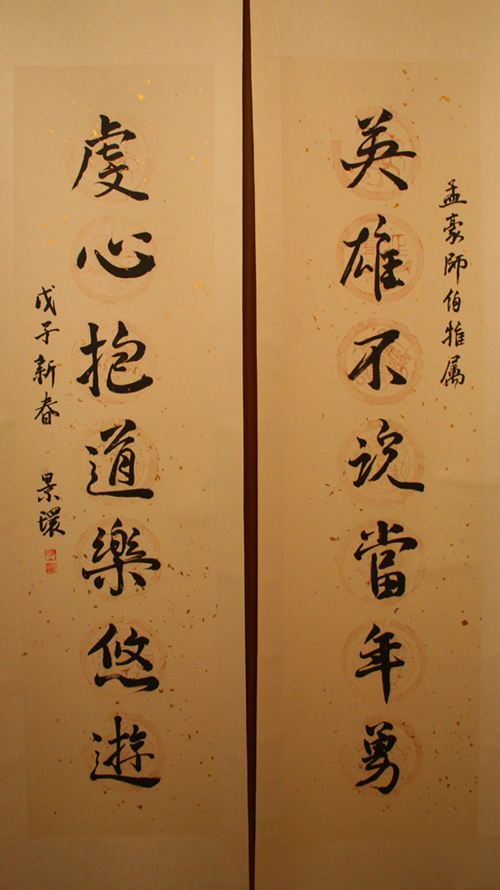 孟豪師伯雅属
英雄不説當年勇
虔心抱道樂悠遊
戊子新春 景環